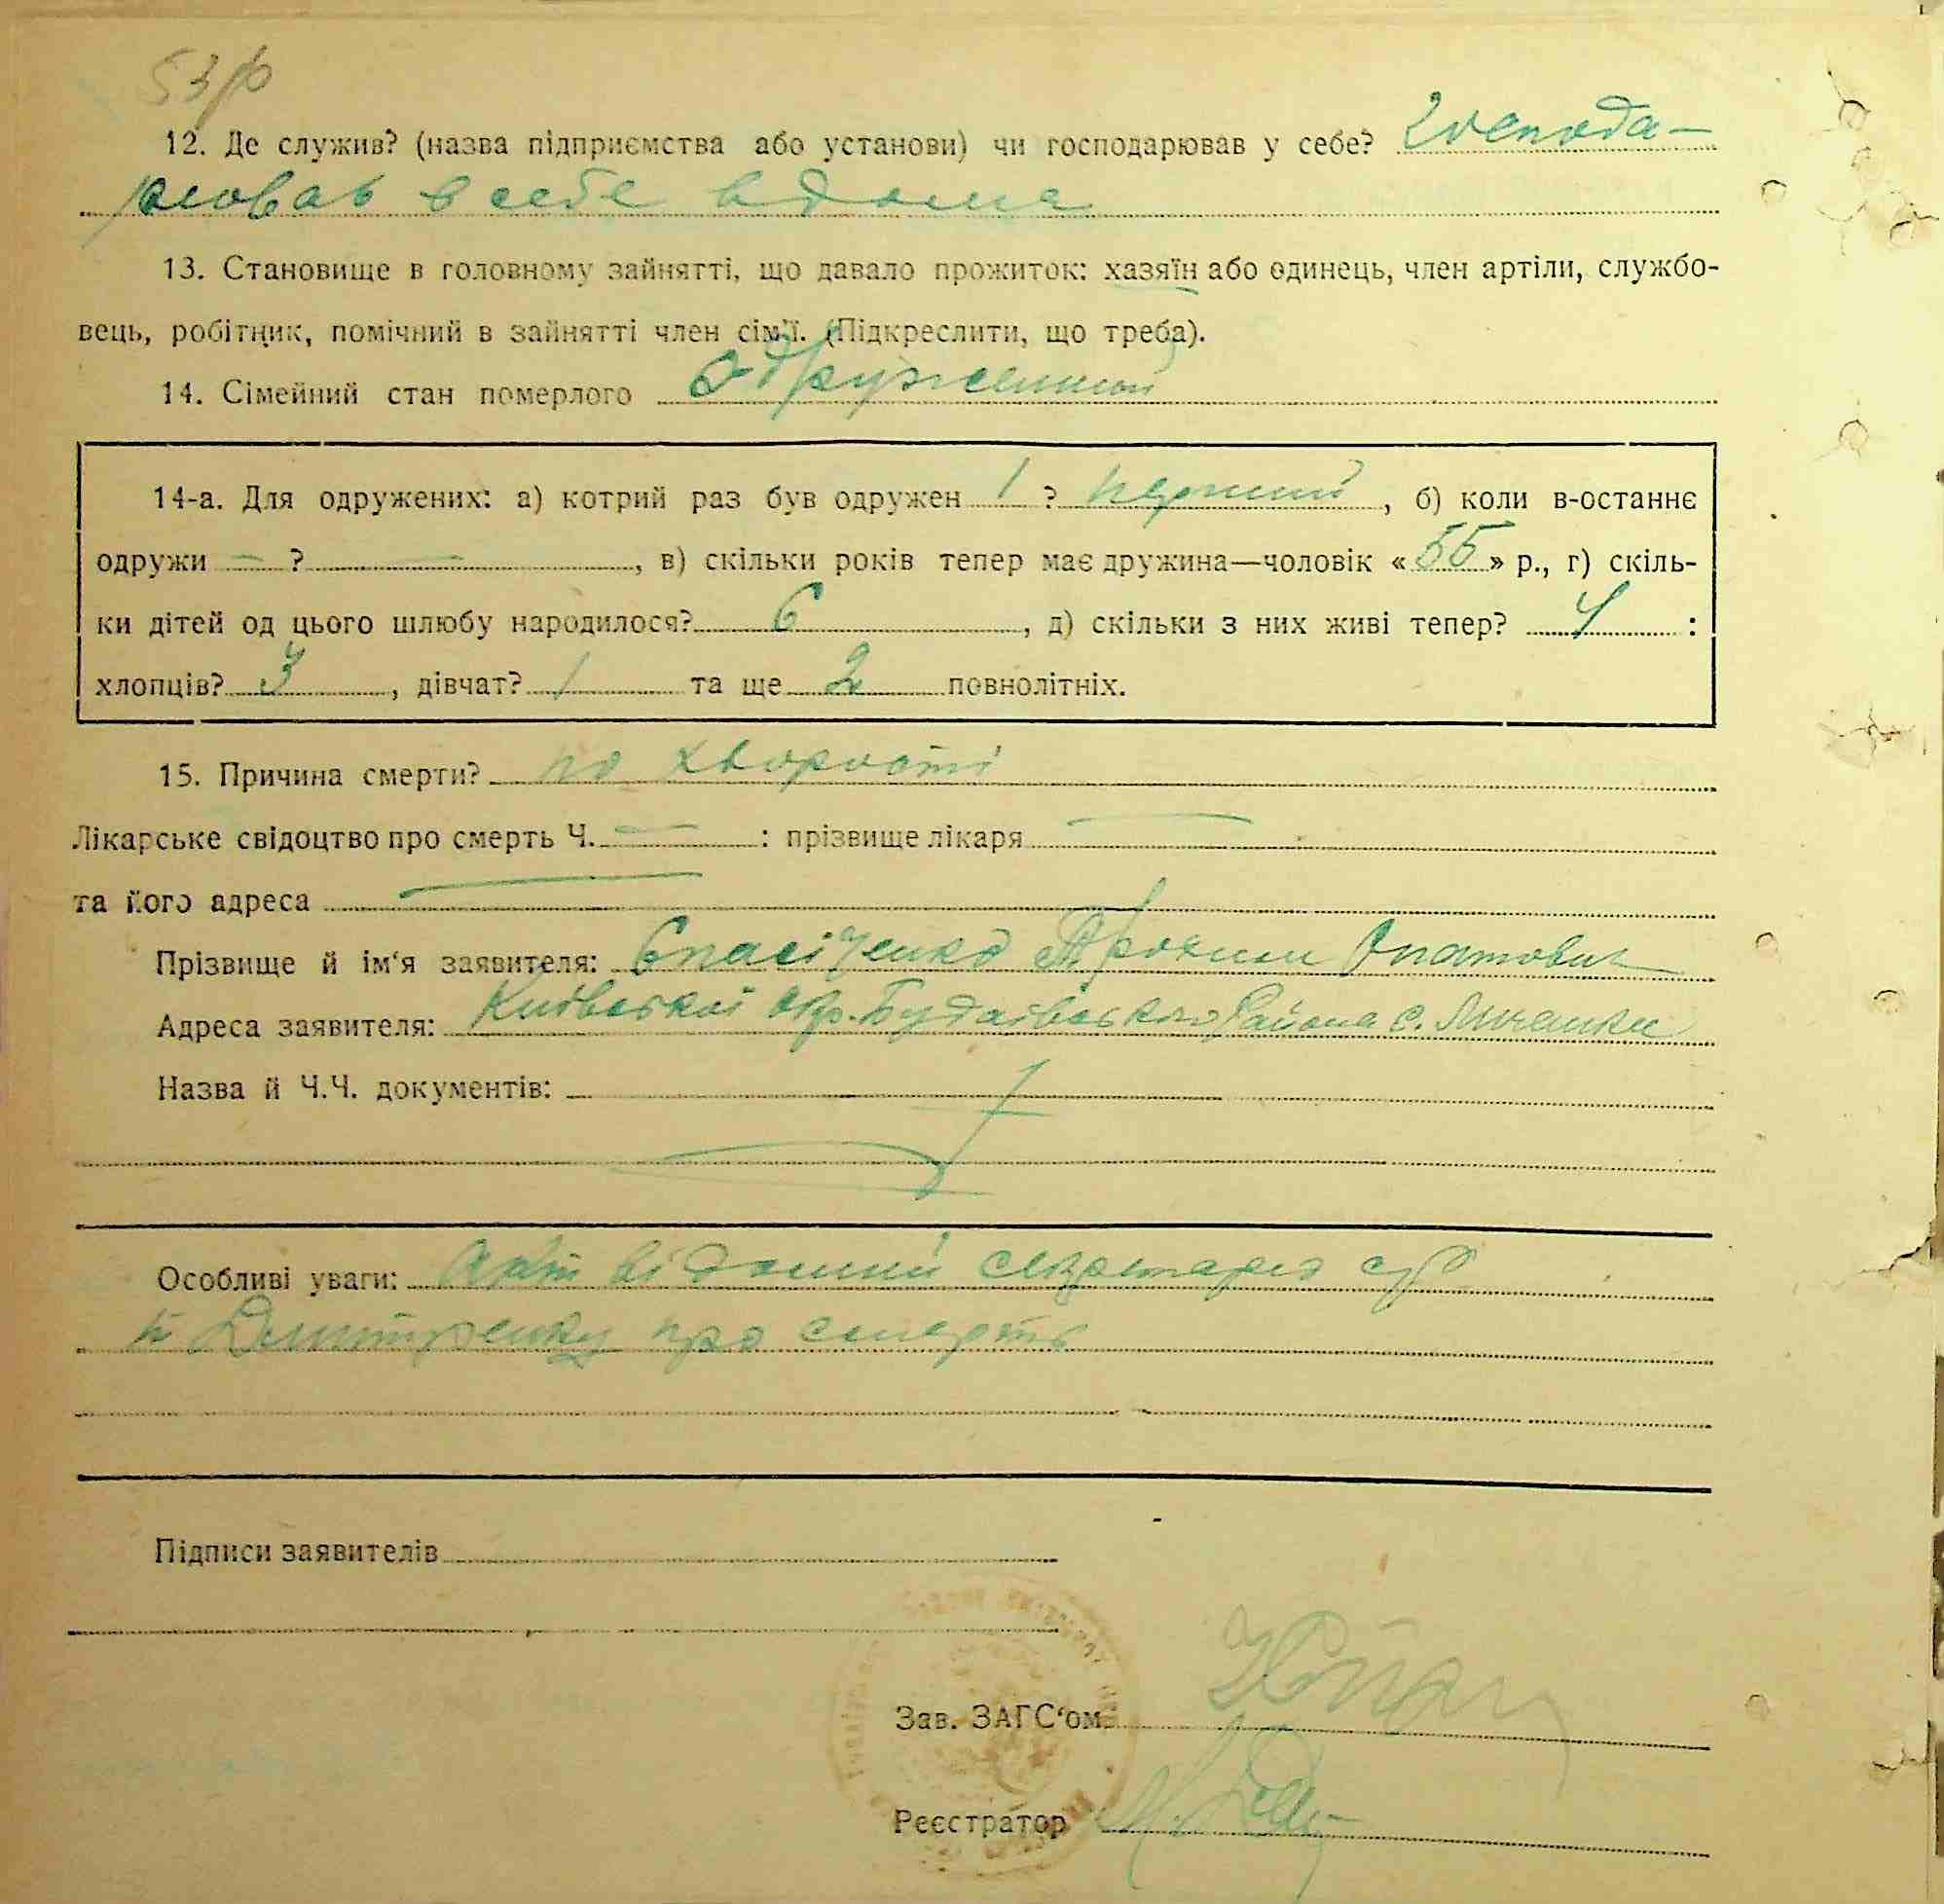 53р
12. Де служив? (назва підприємства або установи) чи господарював у себе? господа-
рював в себе вдома
13. Становище в головному зайнятті, що давало прожиток: хазяїн або одинець, член артіли, службо-
вець, робітник, помічний в зайнятті член сім'ї. (Підкреслити, що треба).
14. Сімейний стан померлого одружений
14-а. Для одружених: а) котрий раз був одружен 1 ? перший, б) коли в-останнє
одружи — ? —, в) скільки років тепер має дружина—чоловік «55» р., г) скіль-
ки дітей од цього шлюбу народилося? 6, д) скільки з них живі тепер? 4 :
хлопців? 3, дівчат? 1 та ще 2 повнолітніх.
15. Причина смерти? по хворості
Лікарське свідоцтво про смерть Ч. — : прізвище лікаря —
та його адреса —
Прізвище й ім'я заявителя: Спасіченко Трохим
Адреса заявителя: Київської окр. Будаївського Района с. Личанки
Назва й Ч.Ч. документів:
Особливі уваги: Акт відомий секретарю с/р
й Дмитренку про смерть
Підписи заявителів
Зав. ЗАГС'ом
Реєстратор